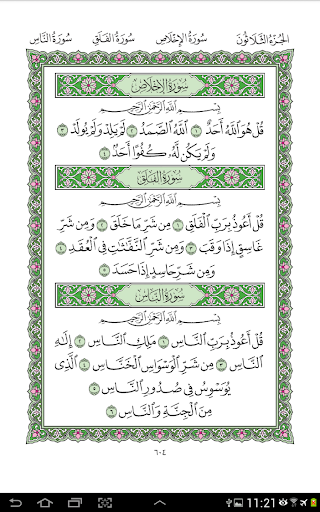 الجزء الثلاثون سورة الإخلاص سورة الفلق سورة الناس
سورة الإخلاص
بِسْمِ اللَّهِ الرَّحْمَٰنِ الرَّحِيمِ
قُلْ هُوَ اللَّهُ أَحَدٌ ١ اللَّهُ الصَّمَدُ ٢ لَمْ يَلِدْ وَلَمْ يُولَدْ ٣
وَلَمْ يَكُن لَّهُ كُفُوًا أَحَدٌ ٤
سورة الفلق
بِسْمِ اللَّهِ الرَّحْمَٰنِ الرَّحِيمِ
قُلْ أَعُوذُ بِرَبِّ الْفَلَقِ ١ مِن شَرِّ مَا خَلَقَ ٢ وَمِن شَرِّ
غَاسِقٍ إِذَا وَقَبَ ٣ وَمِن شَرِّ النَّفَّاثَاتِ فِي الْعُقَدِ ٤
وَمِن شَرِّ حَاسِدٍ إِذَا حَسَدَ ٥
سورة الناس
بِسْمِ اللَّهِ الرَّحْمَٰنِ الرَّحِيمِ
قُلْ أَعُوذُ بِرَبِّ النَّاسِ ١ مَلِكِ النَّاسِ ٢ إِلَٰهِ
النَّاسِ ٣ مِن شَرِّ الْوَسْوَاسِ الْخَنَّاسِ ٤ الَّذِي
يُوَسْوِسُ فِي صُدُورِ النَّاسِ ٥
مِنَ الْجِنَّةِ وَالنَّاسِ ٦
٦٠٤
11:21